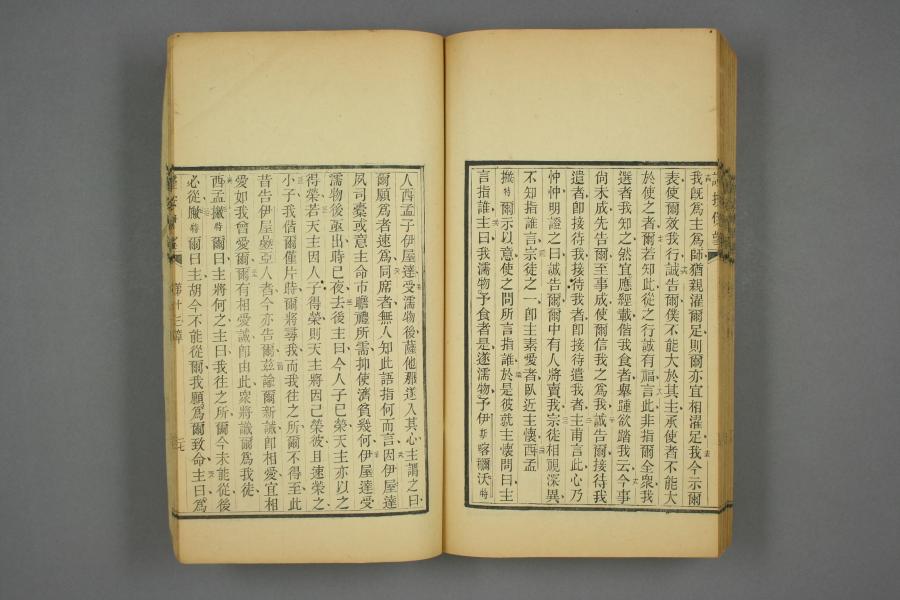 我旣爲主爲師猶親濯爾足則爾亦宜相濯足我今示爾
表使爾效我行誠告爾僕不能大於其主承使者不能大
於使之者爾若知此從之行誠有福言此非指爾全衆我
選者我知之然宜應經載偕我食者舉踵欲踏我云今事
尙未成先告爾至事成使爾信我之爲我誠告爾接待我
遣者卽接待我接待我者卽接待遣我者主甫言此心乃
忡忡明證之曰誠告爾爾中有人將賣我宗徒相視深異
不知指誰言宗徒之一卽主素愛者臥近主懷西孟
撇特爾示以意使之問所言指誰於是彼就主懷問曰主
言指誰主曰我濡物予食者是遂濡物予伊斯喀穪沃特
人西孟子伊屋達受濡物後薩他那遂入其心主謂之曰
爾願爲者速爲同席者無人知此語指何而言因伊屋達
夙司橐或意主命市瞻禮所需抑使濟貧幾何伊屋達受
濡物後亟出時已夜去後主曰今人子已榮天主亦以之
得榮若天主因人子得榮則天主將因己榮彼且速榮之
小子我偕爾僅片時爾將尋我而我往之所爾不得至此
昔告伊屋叠亞人者今亦告爾茲諭爾新誡卽相愛宜相
愛如我曾愛爾爾有相愛誠卽由此衆將識爾爲我徒
西孟撇特爾曰主將何之主曰我往之所爾今未能從後
必從撇特爾曰主胡今不能從爾我願爲爾致命主曰爲
第十三章